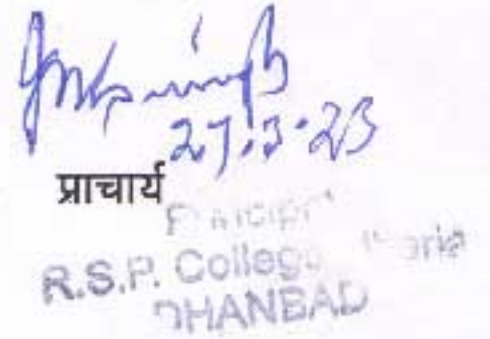 27.3.23
प्राचार्य
Principal
R.S.P. College
DHANBAD